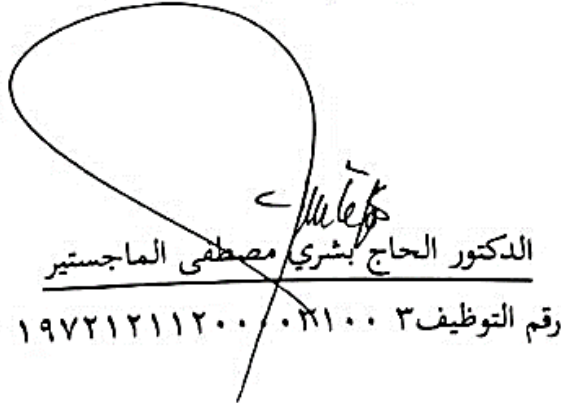 الدكتور الحاج بشري مصطفى الماجستير
رقم التوظيف٣ ١٩٧٢١٢١١٢٠٠٠٠٣١٠٠